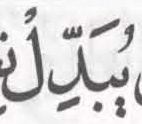 يُبَدِّلْ